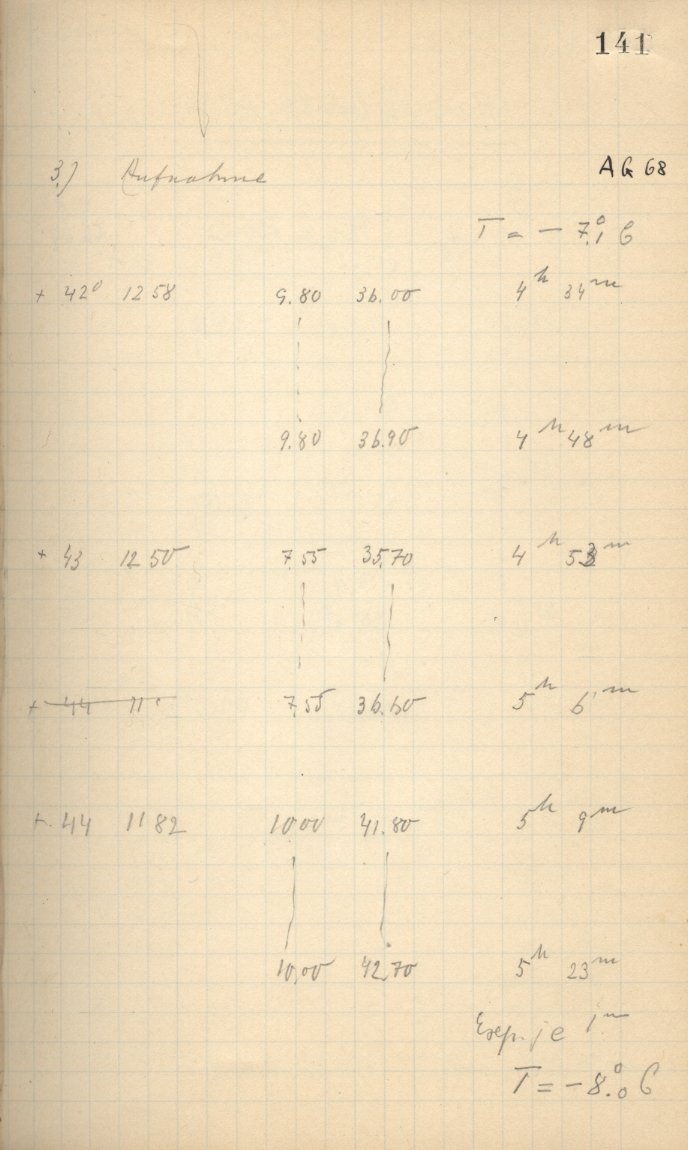 141
3.) Aufnahme AG 68
T = - 7°.1 C
+ 42° 1258 9.80 36.00 4h 34m
9.80 36.90 4h 48m
+ 43 1250 7.55 35.70 4h 53m
+ 44 11 7.55 36.60 5h 6m
+ 44 1182 10.00 41.80 5h 9m
10.00 42.70 5h 23m
Exp. je 1m
T = - 8°.0 C